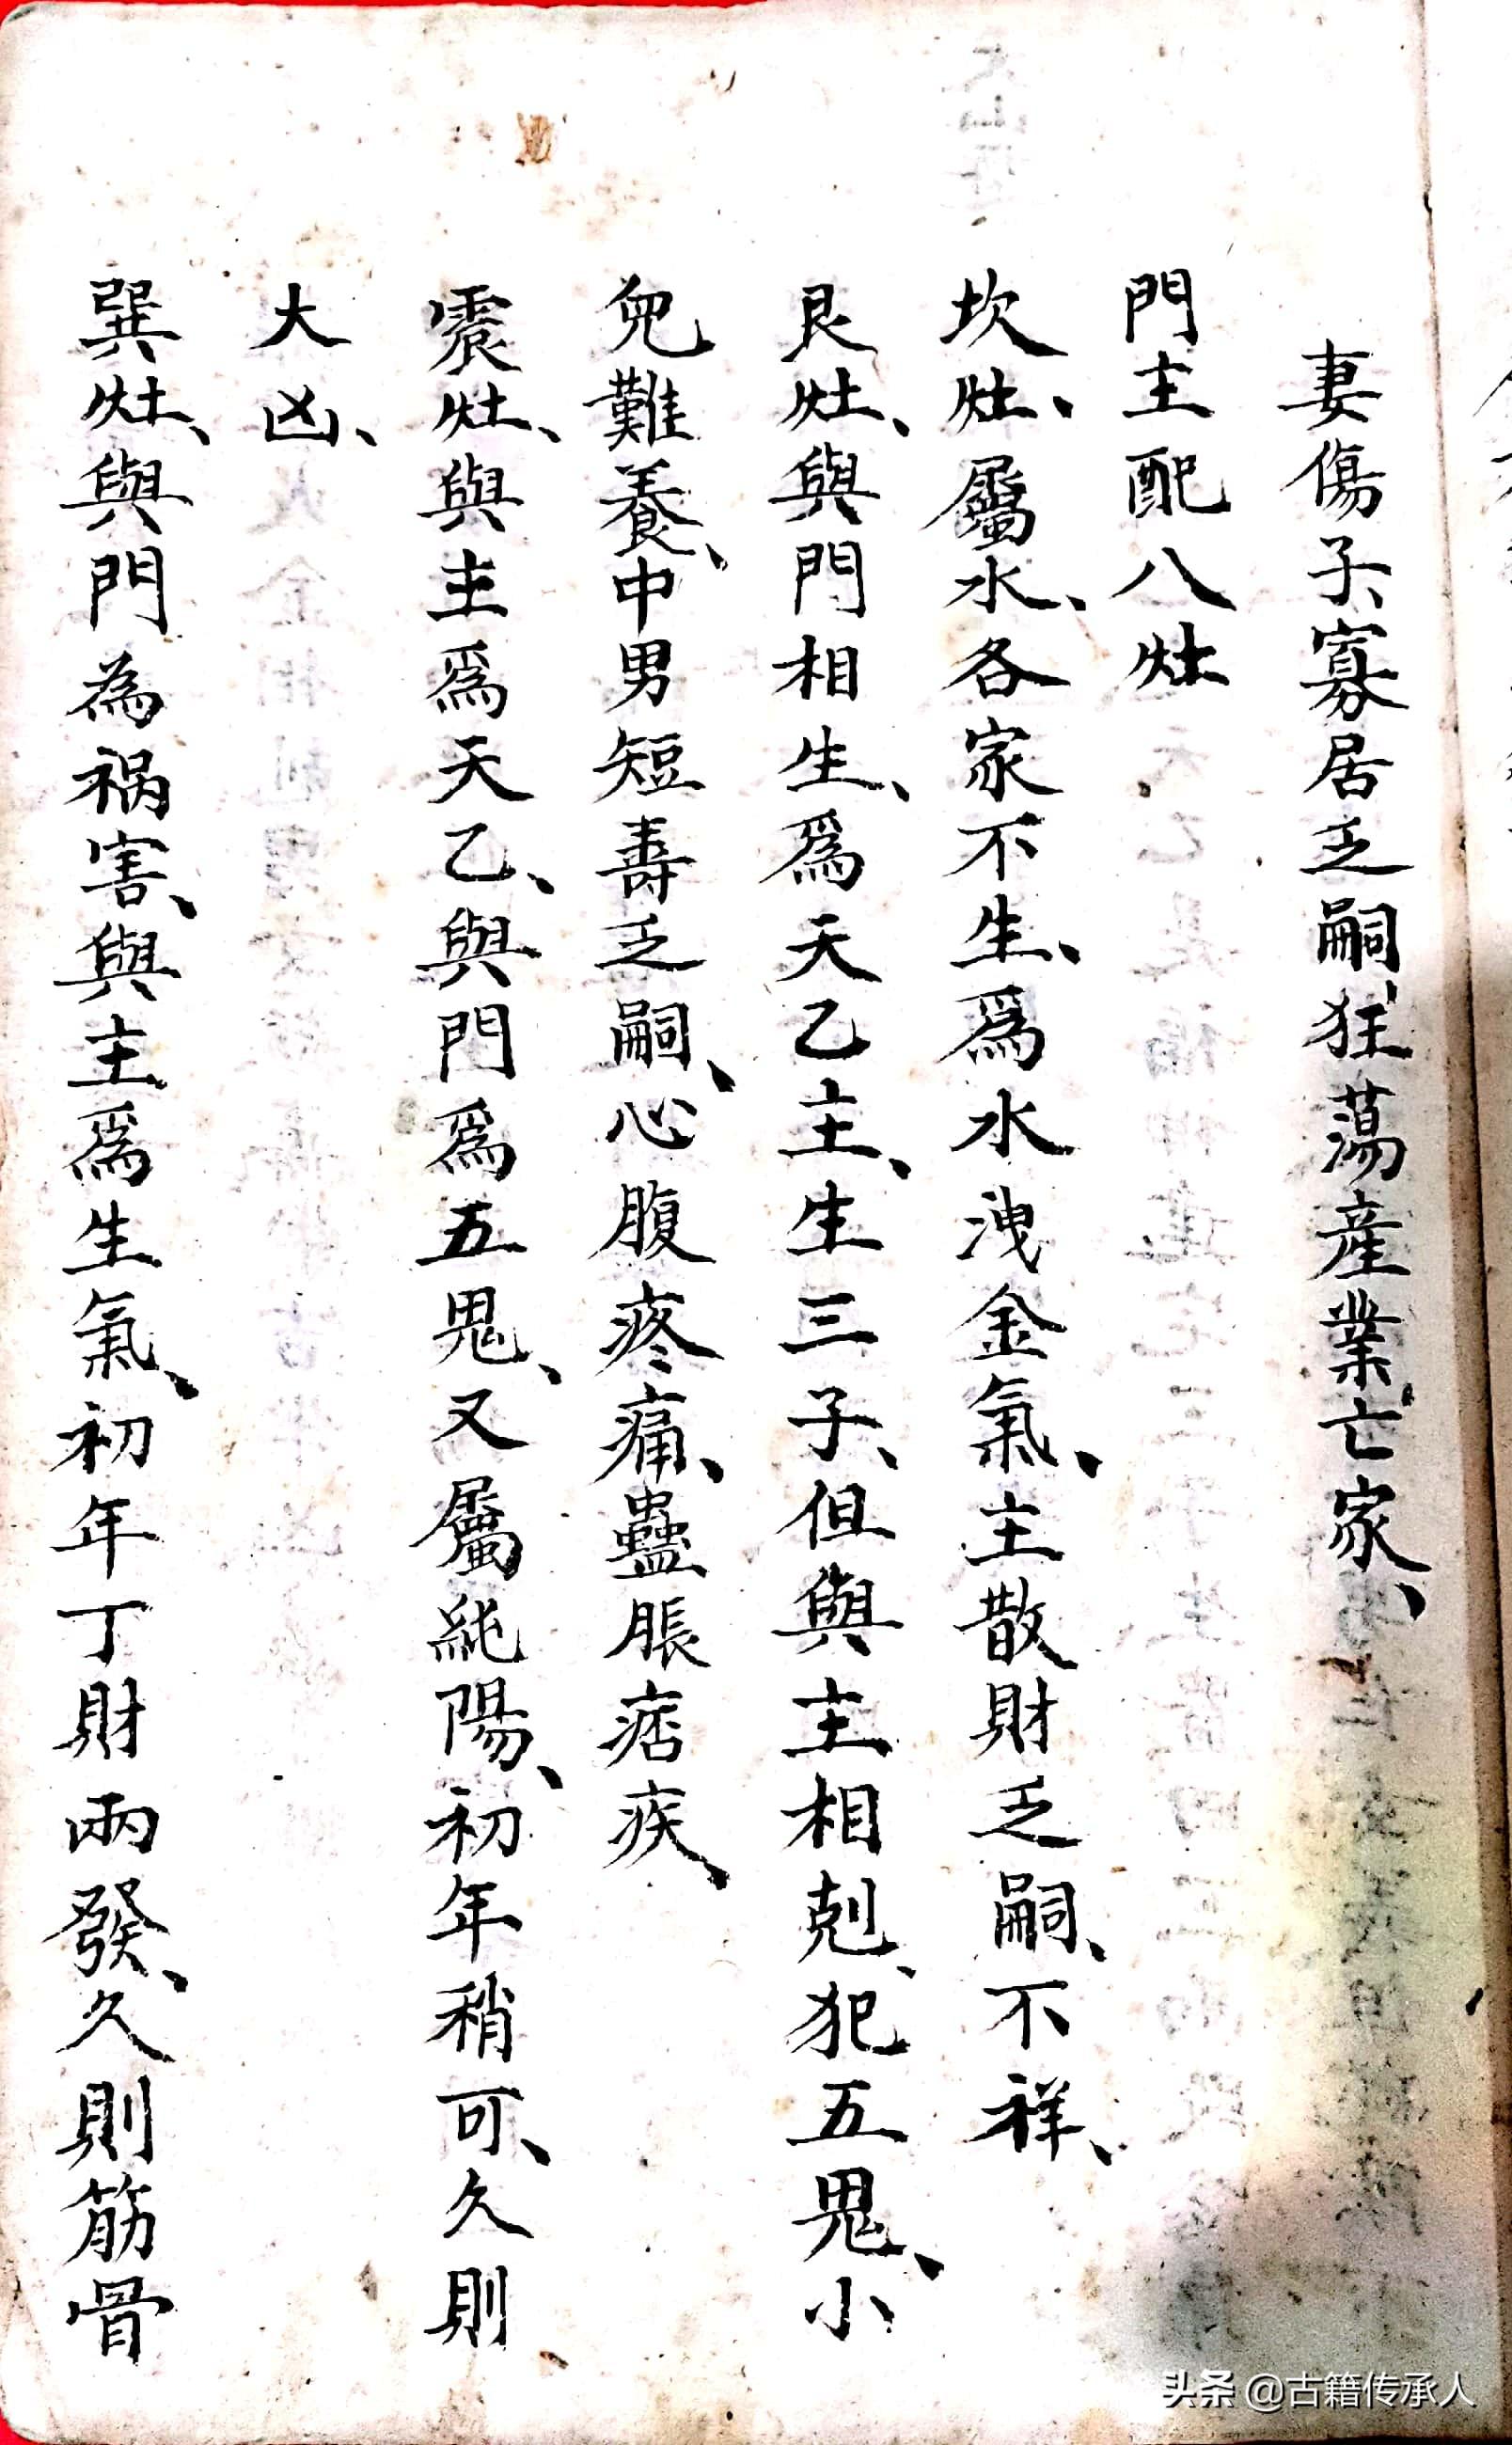 妻傷子、寡居乏嗣、狂蕩産業、亡家、
門主配八灶
坎灶、屬水、各家不生、爲水洩金氣、主散財乏嗣、不祥、
艮灶、與門相生、爲天乙主、生三子、但與主相剋、犯五鬼、小
兒難養、中男短壽乏嗣、心腹疼痛、蠱脹痞疾、
震灶、與主爲天乙、與門爲五鬼、又屬純陽、初年稍可、久則
大凶、
巽灶、與門為禍害、與主爲生氣、初年丁財兩發、久則筋骨
头条 @古籍传承人